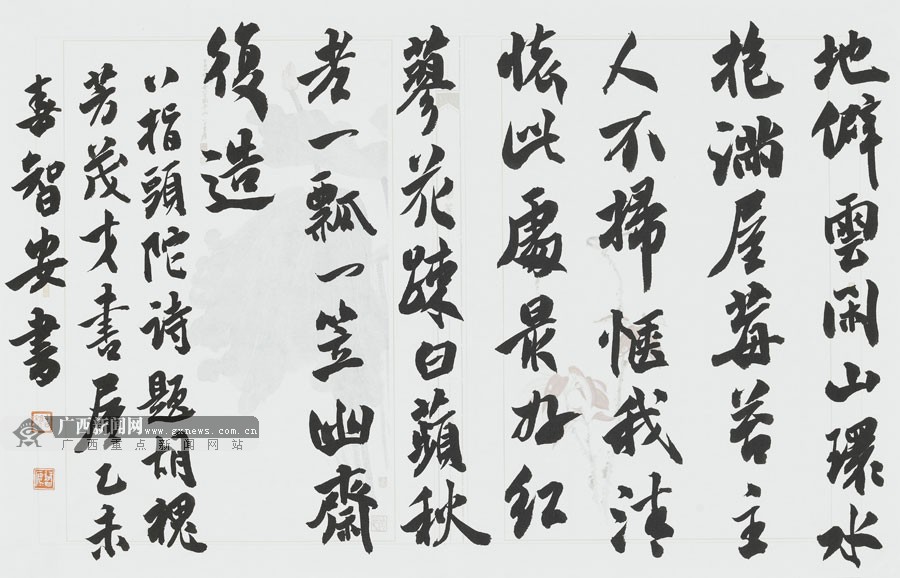 地僻雲閑山環水
抱滿屋莓苔主
人不掃愜我清
懷此處最好紅
蓼花疎白蘋秋
老一瓢一笠幽齋
復造
八指頭陀詩題胡槐
芳茂才書屋乙未
智安書
广西新闻网
www.gxnews.com.cn
广西重点新闻网站